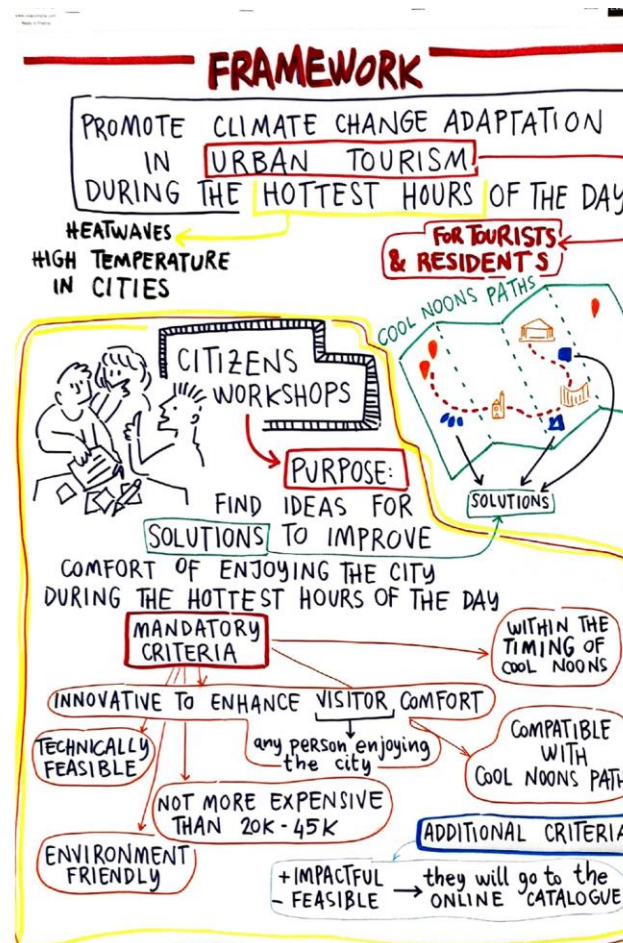 FRAMEWORK
PROMOTE CLIMATE CHANGE ADAPTATION
IN URBAN TOURISM
DURING THE HOTTEST HOURS OF THE DAY
HEATWAVES
HIGH TEMPERATURE
IN CITIES
FOR TOURISTS
& RESIDENTS
COOL NOONS PATHS
SOLUTIONS
CITIZENS
WORKSHOPS
PURPOSE:
FIND IDEAS FOR
SOLUTIONS TO IMPROVE
COMFORT OF ENJOYING THE CITY
DURING THE HOTTEST HOURS OF THE DAY
MANDATORY
CRITERIA
WITHIN THE
TIMING OF
COOL NOONS
INNOVATIVE TO ENHANCE VISITOR COMFORT
any person enjoying
the city
TECHNICALLY
FEASIBLE
COMPATIBLE
WITH
COOL NOONS PATH
NOT MORE EXPENSIVE
THAN 20K - 45K
ENVIRONMENT
FRIENDLY
ADDITIONAL CRITERIA
+ IMPACTFUL
- FEASIBLE
they will go to the
ONLINE CATALOGUE